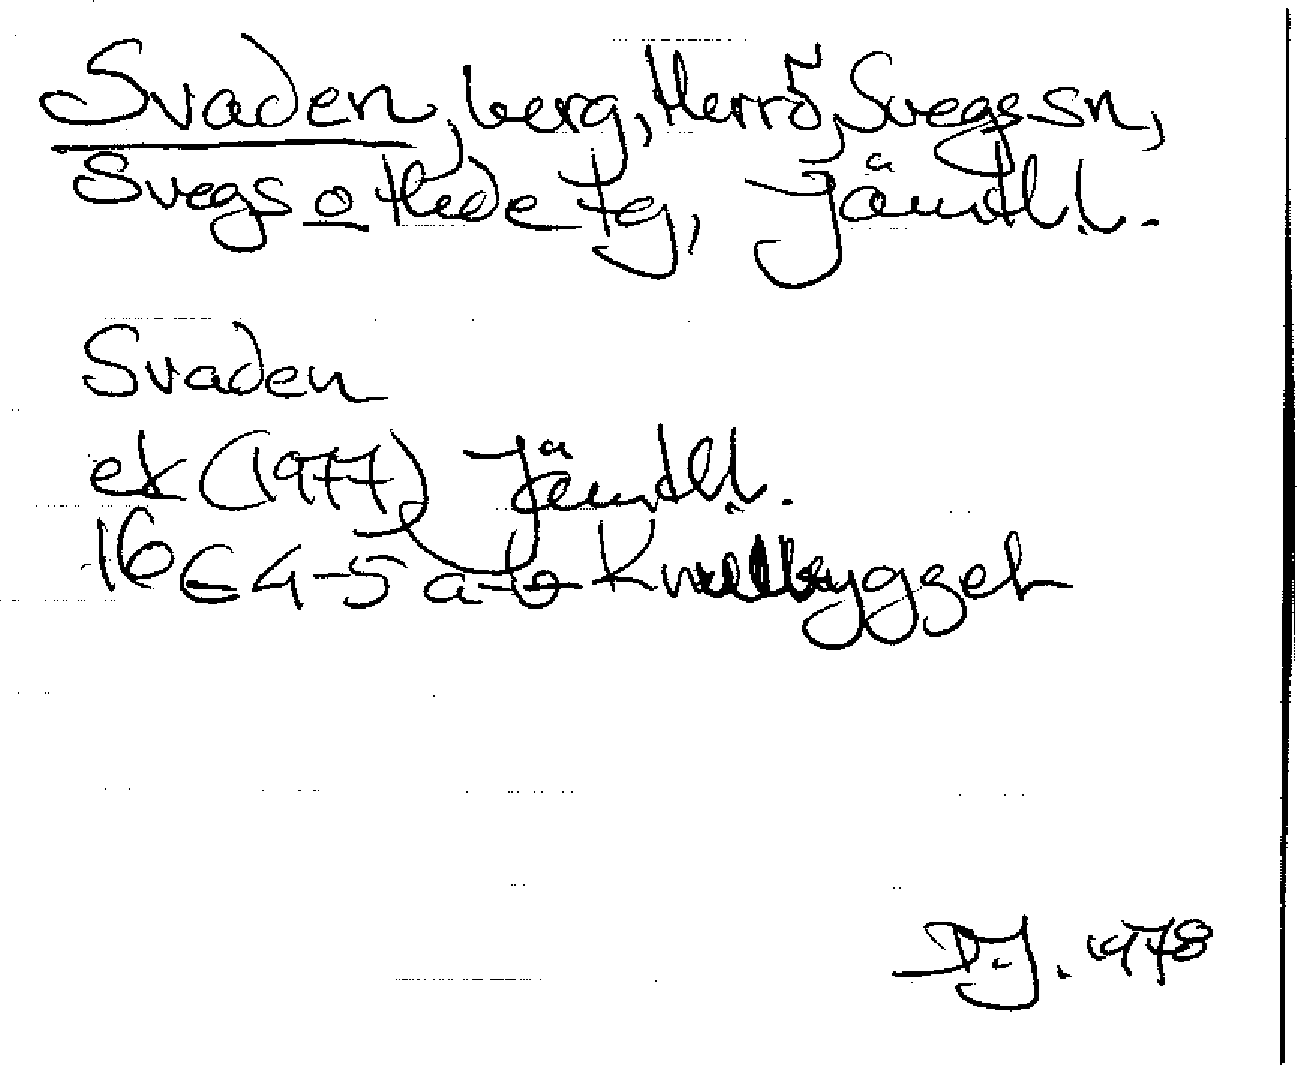 Svaden, berg, Herrö, Svegs sn,
Svegs o Hede tg, Jämtl.l.
Svaden
ek (1977) Jämtl.l.
16 E 4-5 a-b Knullbygget
D.J. 1978